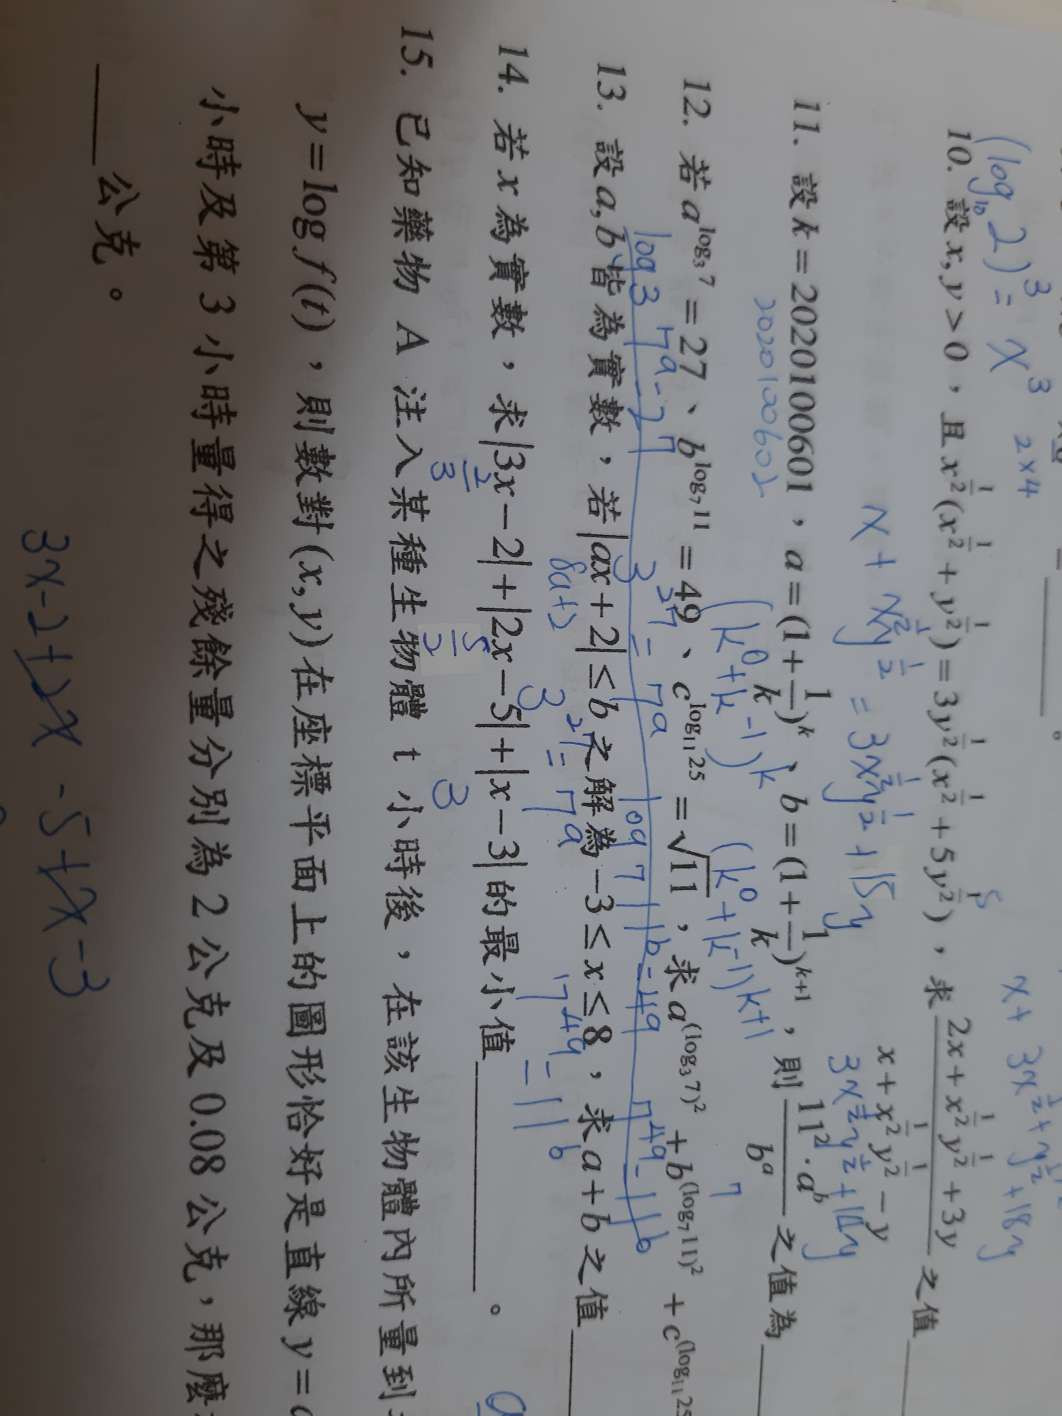 (log₁₀2)³ = x³
2×4
10. 設 x, y > 0，且 x^{1/2}(x^{1/2} + y^{1/2}) = 3y^{1/2}(x^{1/2} + 5y^{1/2})，求 \frac{2x + x^{1/2}y^{1/2} + 3y}{x + x^{1/2}y^{1/2} - y} 之值
x + x^{1/2}y^{1/2} = 3x^{1/2}y^{1/2} + 15y
11. 設 k = 2020100601，a = (1 + \frac{1}{k})^k、b = (1 + \frac{1}{k})^{k+1}，則 \frac{11^2 · a^b}{b^a} 之值為
2020100602
(k⁰ + k⁻¹)k
(k⁰ + k⁻¹)k+1
12. 若 a^{log₃7} = 27、b^{log₇11} = 49、c^{log₁₁25} = √11，求 a^{(log₃7)²} + b^{(log₇11)²} + c^{(log₁₁25
13. 設 a, b 皆為實數，若 |ax + 2| ≤ b 之解為 −3 ≤ x ≤ 8，求 a + b 之值
8a+2
14. 若 x 為實數，求 |3x − 2| + |2x − 5| + |x − 3| 的最小值 。
2/3
5/2
3
15. 已知藥物 A 注入某種生物體 t 小時後，在該生物體內所量到
y = log f(t)，則數對 (x, y) 在座標平面上的圖形恰好是直線 y =
小時及第 3 小時量得之殘餘量分別為 2 公克及 0.08 公克，那麼
公克。
3x-2+2x-5+x-3